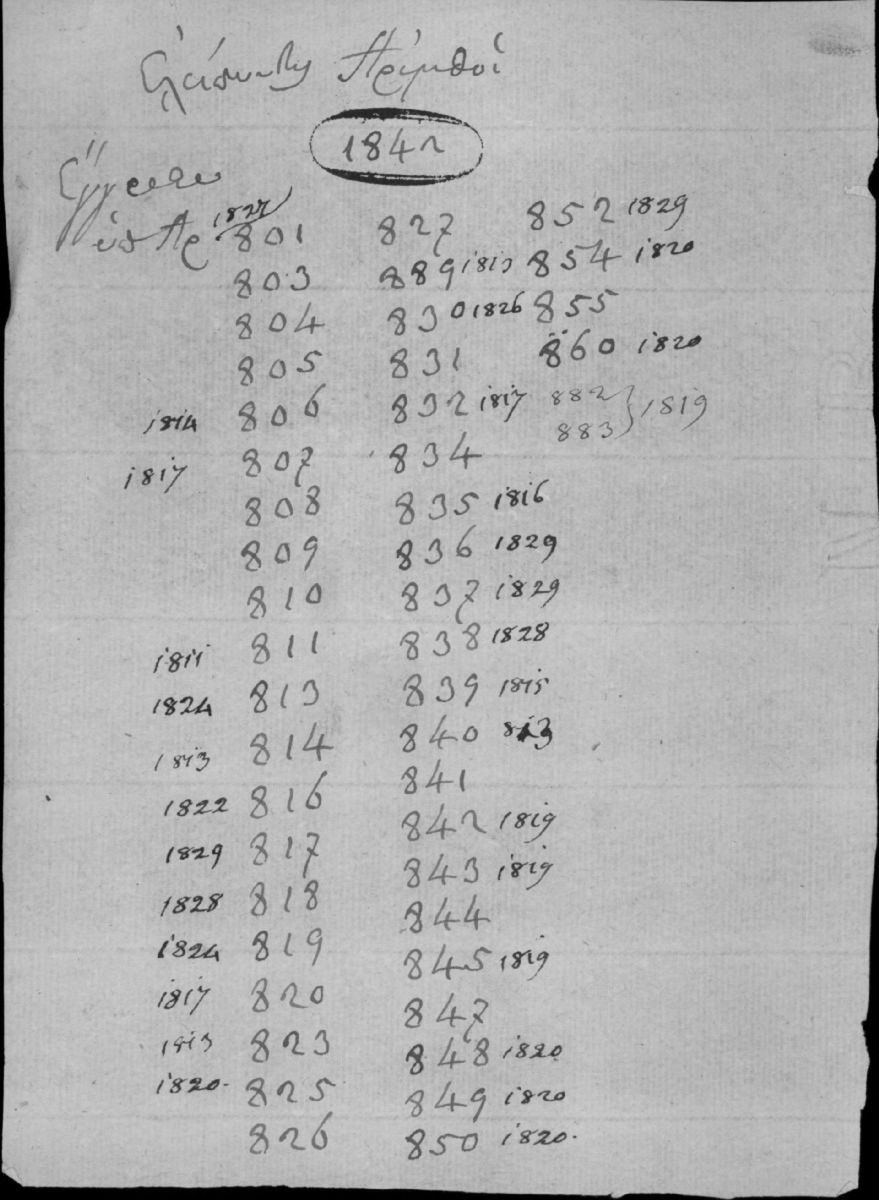 Ελείποντες Αριθμοί
1842
Εγγραφα
υπ Αρ 1827 801
803
804
805
1814 806
1817 807
808
809
810
1811 811
1824 813
1813 814
1822 816
1829 817
1828 818
1824 819
1817 820
1813 823
1820. 825
826
827
889 1813
830 1826
831
832 1817
834
835 1816
836 1829
837 1829
838 1828
839 1815
840 813
841
842 1819
843 1819
844
845 1819
847
848 1820
849 1820
850 1820.
852 1829
854 1820
855
860 1820
882 } 1819
883